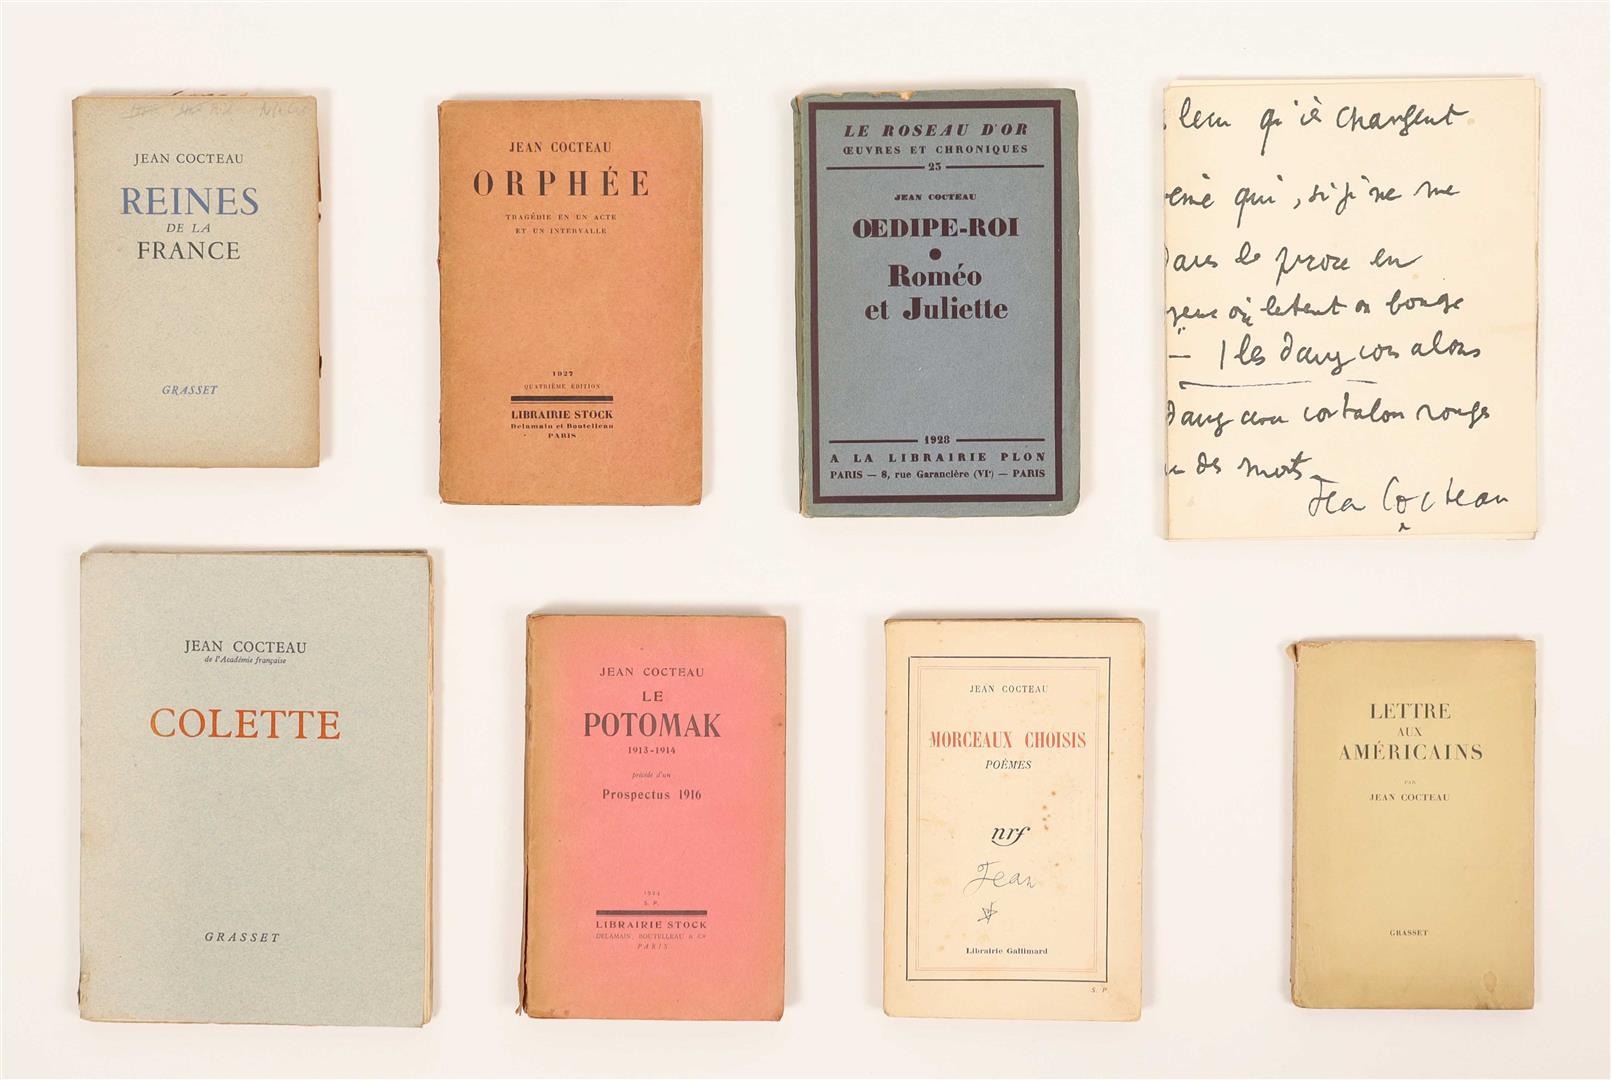 JEAN COCTEAU
REINES
DE LA
FRANCE
GRASSET
JEAN COCTEAU
ORPHÉE
TRAGÉDIE EN UN ACTE
ET UN INTERVALLE
1927
QUATRIÈME ÉDITION
LIBRAIRIE STOCK
Delamain et Boutelleau
PARIS
LE ROSEAU D'OR
ŒUVRES ET CHRONIQUES
25
JEAN COCTEAU
ŒDIPE-ROI
●
Roméo
et Juliette
1928
A LA LIBRAIRIE PLON
PARIS — 8, rue Garancière (VIe) — PARIS
changent
qui, si je ne me
dans le prose en
on bouge
— les
rouges
des morts
Jean Cocteau
JEAN COCTEAU
de l'Académie française
COLETTE
GRASSET
JEAN COCTEAU
LE
POTOMAK
1913-1914
précédé d'un
Prospectus 1916
1924
S. P.
LIBRAIRIE STOCK
DELAMAIN, BOUTELLEAU & Cie
PARIS
JEAN COCTEAU
MORCEAUX CHOISIS
POÈMES
nrf
Jean
Librairie Gallimard
S. P.
LETTRE
AUX
AMÉRICAINS
PAR
JEAN COCTEAU
GRASSET